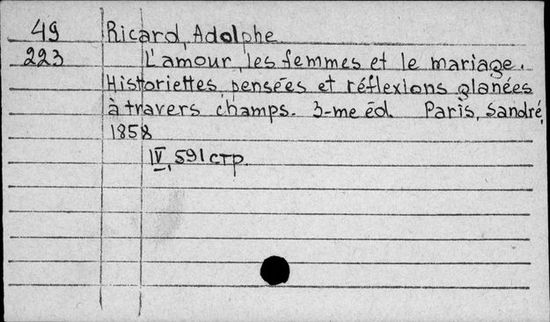 49 Ricard, Adolphe
223 L'amour, les femmes et le mariage.
Historiettes, pensées et réflexions glanées
à travers champs. 3-me éd. Paris, Sandré,
1858
IV, 591 стр.